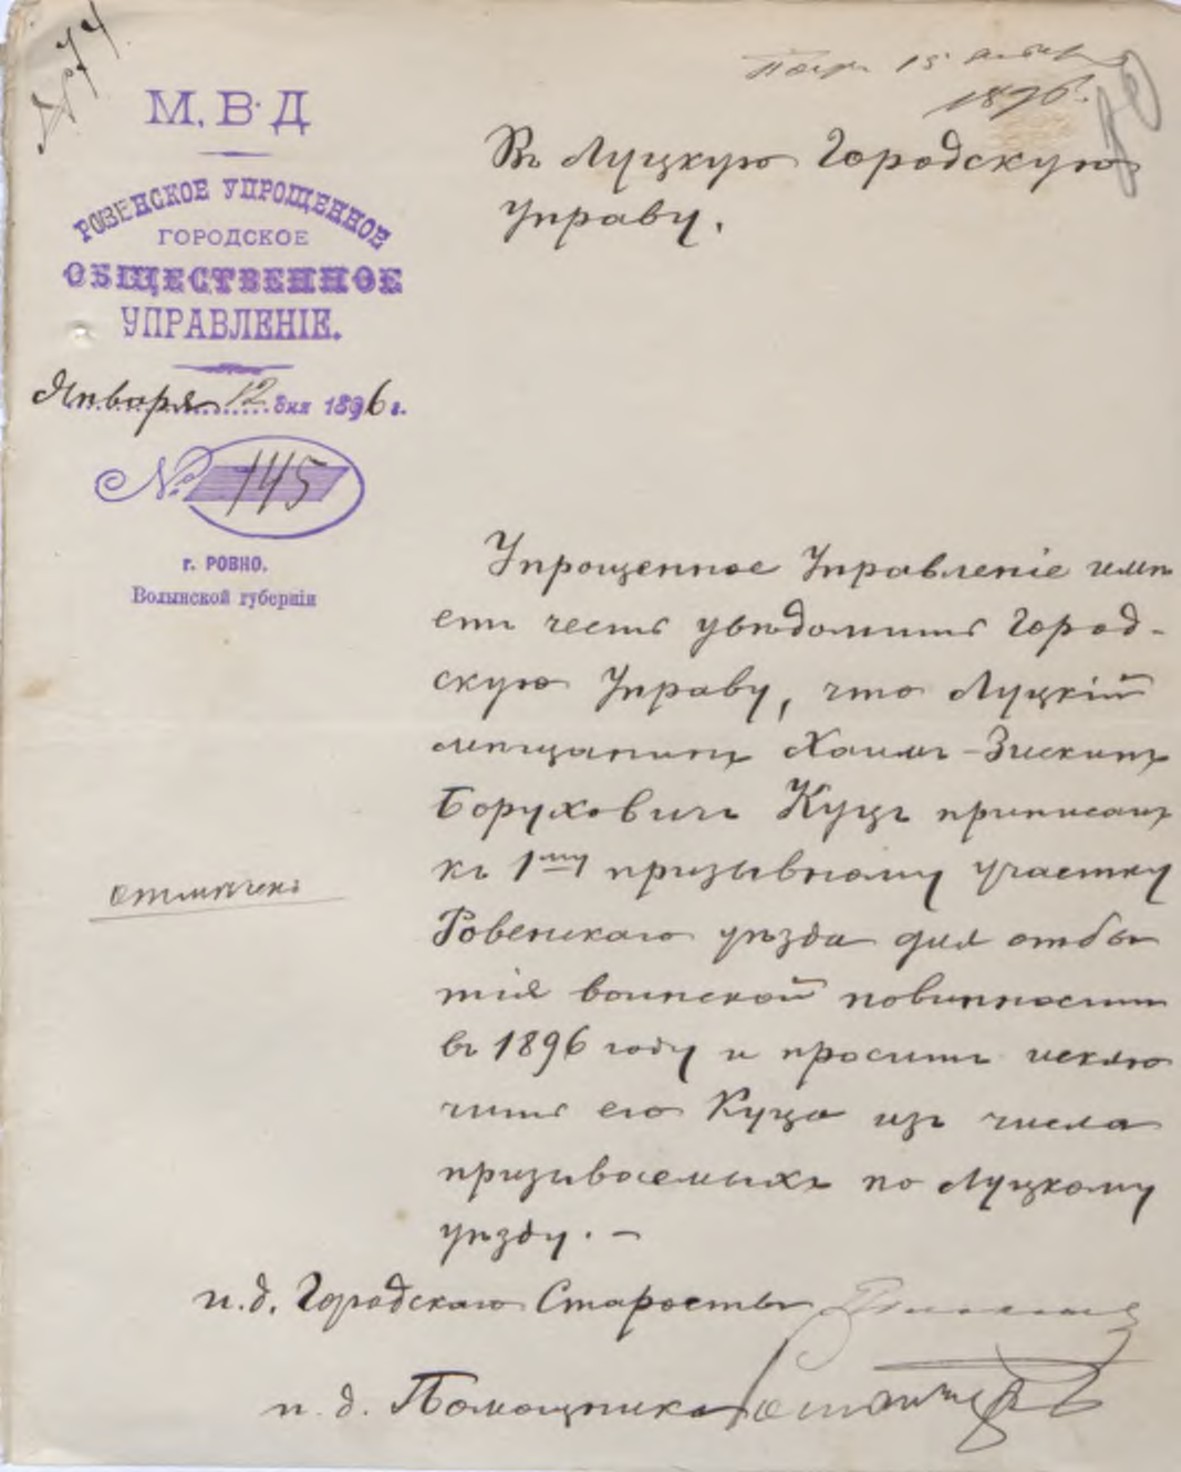 № 74
М. В. Д
РОВЕНСКОЕ УПРОЩЕННОЕ
ГОРОДСКОЕ
ОБЩЕСТВЕННОЕ
УПРАВЛЕНІЕ.
Января 12 дня 1896 г.
№ 145
г. РОВНО.
Волынской губерніи
15
1896.
Въ Луцкую Городскую
Управу.
Упрощенное Управленіе имѣ
етъ честь увѣдомить Город-
скую Управу, что Луцкій
мѣщанинъ Хаимъ-Зискинъ
Боруховичъ Куцъ приписанъ
къ 1му призывному участку
Ровенскаго уѣзда для отбы
тія воинской повинности
въ 1896 году и проситъ исклю
чить его Куца изъ числа
призываемыхъ по Луцкому
уѣзду. –
отмѣчено
и.д. Городскаго Старосты
и. д. Помощника